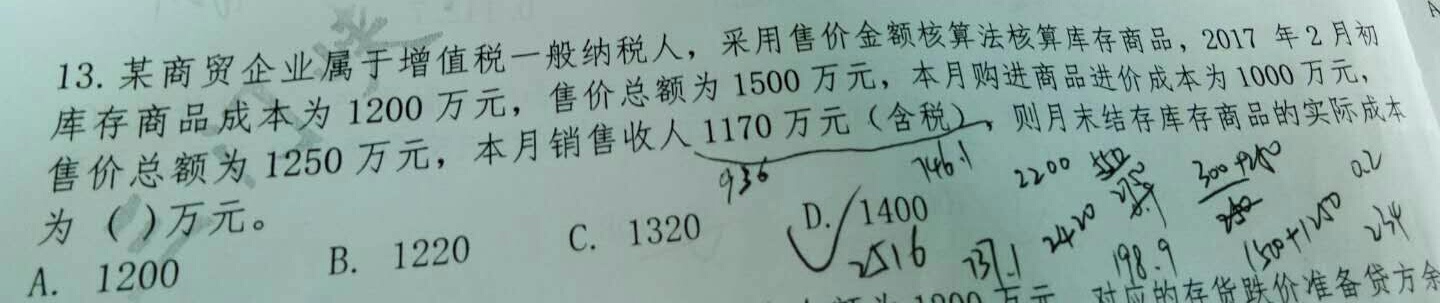 13. 某商贸企业属于增值税一般纳税人，采用售价金额核算法核算库存商品，2017 年 2 月初
库存商品成本为 1200 万元，售价总额为 1500 万元，本月购进商品进价成本为 1000 万元，
售价总额为 1250 万元，本月销售收人 1170 万元（含税），则月末结存库存商品的实际成本
为（ ）万元。
936 746.1 2200 300+250 0.2
A. 1200 B. 1220 C. 1320 D. 1400
2516 737.1 2420 198.9 1500+1250 234
对应的存货跌价准备贷方余